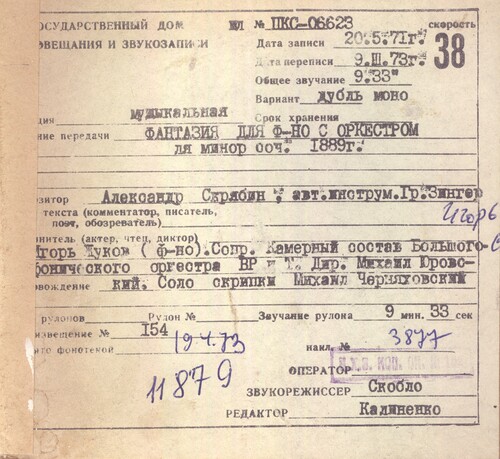 ОСУДАРСТВЕННЫЙ ДОМ
ОВЕЩАНИЯ И ЗВУКОЗАПИСИ
№ ПКС-06623
скорость
38
Дата записи 20.5.71г.
Дата переписи 9.III.73г.
Общее звучание 9.33"
Вариант дубль моно
музыкальная
Срок хранения
ние передачи ФАНТАЗИЯ ДЛЯ Ф-НО С ОРКЕСТРОМ
ля минор соч. 1889г.
озитор Александр Скрябин авт.инструм.Гр.Зингер
текста (комментатор, писатель,
поэт, обозреватель)
Игорь
нитель (актер, чтец, диктор)
Игорь Жуков ( ф-но).Сопр. Камерный состав Большого С
фонического оркестра ВР и Т. Дир. Михаил Юровс-
вождение кий. Соло скрипки Михаил Черняховский
рулонов Рулон № Звучание рулона 9 мин. 33 сек
154
19.4.73
накл. № 3877
го фонотекой
11879
ОПЕРАТОР
ЗВУКОРЕЖИССЕР Скобло
РЕДАКТОР Калиненко